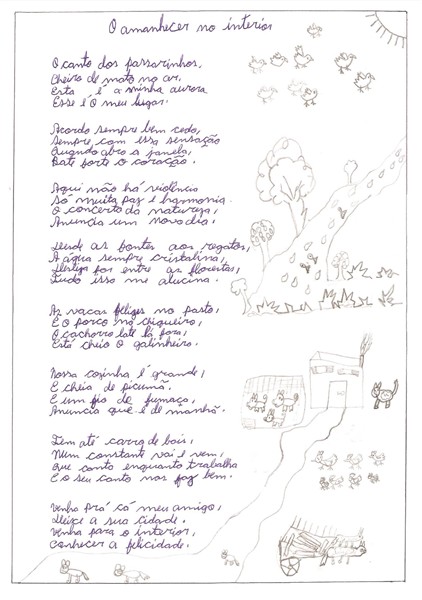 O amanhecer no interior
O canto dos passarinhos,
Cheiro de mato no ar,
Esta é a minha aurora
Esse é o meu lugar.
Acordo sempre bem cedo,
Sempre com essa sensação
Quando abro a janela,
Bate forte o coração.
Aqui não há violência
Só muita paz e harmonia.
O concerto da natureza,
Anuncia um novo dia.
Desde as fontes aos regatos,
A água sempre cristalina,
por entre as florestas,
Tudo isso me alucina.
As vacas felizes no pasto,
E o porco no chiqueiro,
O cachorro late lá fora,
Está cheio o galinheiro.
Nossa cozinha é grande,
E cheia de picumã.
E um fio de fumaça,
Anuncia que é de manhã.
Tem até carro de bois,
Num constante vai e vem,
Que canta enquanto trabalha
E o seu canto nos faz bem.
Venha prá cá meu amigo,
Deixe a sua cidade.
Venha para o interior,
Conhecer a felicidade.